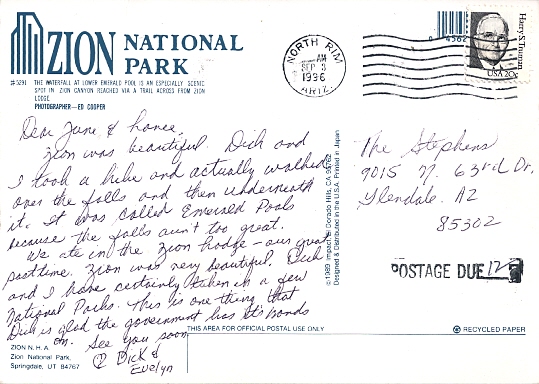 ZION NATIONAL
PARK
#5291 THE WATERFALL AT LOWER EMERALD POOL IS AN ESPECIALLY SCENIC
SPOT IN ZION CANYON REACHED VIA A TRAIL ACROSS FROM ZION
LODGE.
PHOTOGRAPHER—ED COOPER
NORTH RIM
AM
SEP 3
1996
ARIZ.
04362
Harry S. Truman
USA 20c
Dear June &
Zion was beautiful. Dick and
I took a hike and actually walked
over the falls and then underneath
it. It was called Emerald Pools
because the falls ain't too great.
We ate in the Zion Lodge - our great
pasttime. Zion was very beautiful. Dick
and I have certainly taken in a few
National Parks. This is one thing that
Dick is glad the government has its hands
on. See you soon
Dick &
Evelyn
The Stephens
9015 N. 63rd Dr.
Glendale, AZ
85302
POSTAGE DUE 12
© 1989 Impact, El Dorado Hills, CA 95762
Designed & Distributed in the U.S.A. Printed in Japan
THIS AREA FOR OFFICIAL POSTAL USE ONLY
RECYCLED PAPER
ZION N.H.A.
Zion National Park,
Springdale, UT 84767